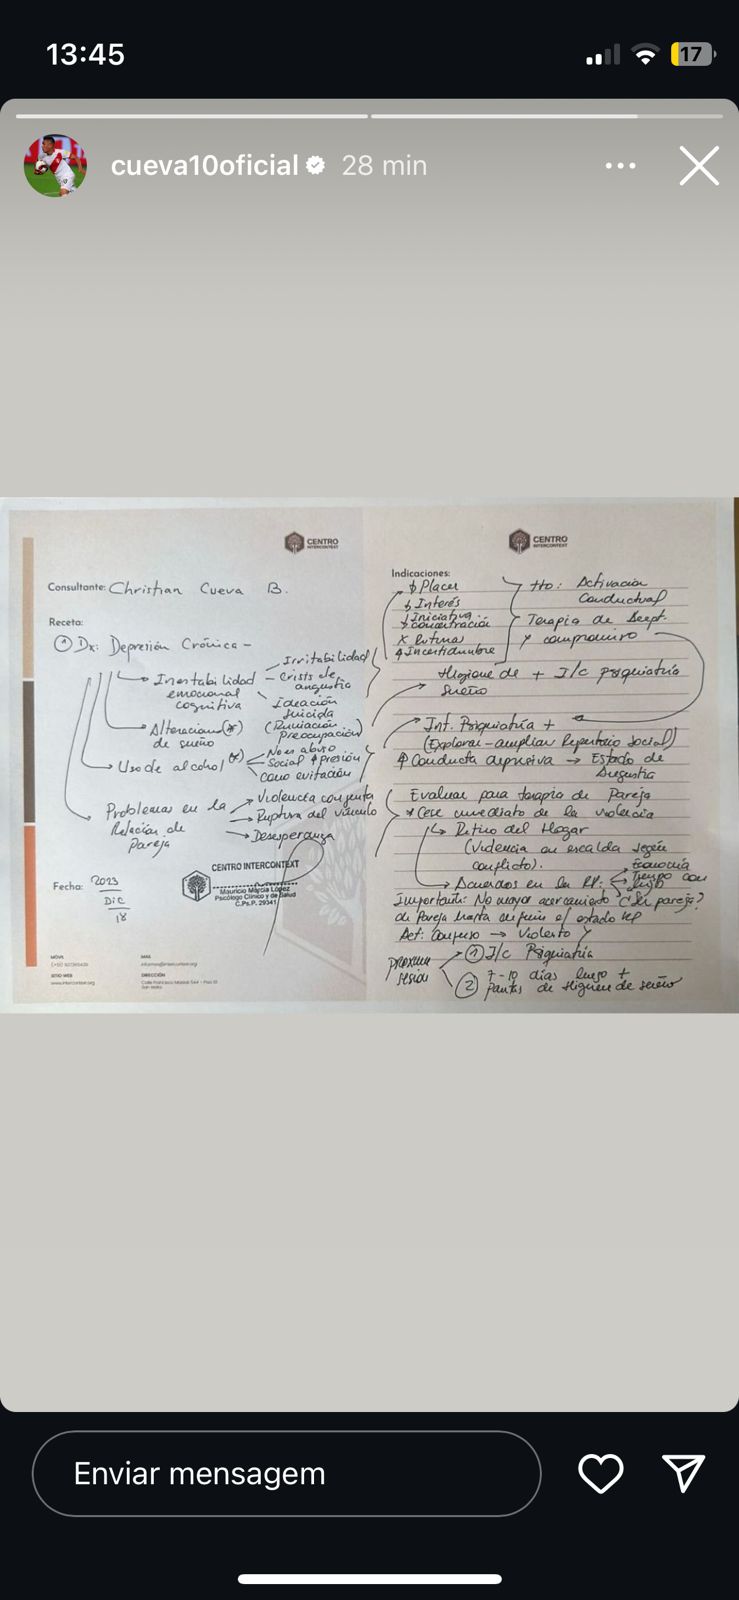 13:45
17
cueva10oficial 28 min
CENTRO
INTERCONTEXT
Consultante: Christian Cueva B.
Receta:
① Dx: Depresión Crónica -
Inestabilidad
emocional
cognitiva
- Irritabilidad
- Crisis de
angustia
Ideación
suicida
(Rumiación
Preocupación)
Alteraciones (*)
de sueño
Uso de alcohol (*)
No es abuso
Social ↑ presión
como evitación
Problemas en la
Relación de
Pareja
Violencia conjunta
Ruptura del vínculo
Desesperanza
Fecha: 2023
Dic
18
CENTRO INTERCONTEXT
Mauricio Marcia López
Psicólogo Clínico y de Salud
C.Ps.P. 29341
MÓVIL
MAIL
SITIO WEB
www.intercontext.org
DIRECCIÓN
CENTRO
INTERCONTEXT
Indicaciones:
↓ Placer
↓ Interés
↓ Iniciativa
↓ Concentración
X Rutina
↑ Incertidumbre
tto: Activación
Conductual
Terapia de Acept.
y compromiso
Higiene de + I/c psiquiatría
sueño
Int. Psiquiatría +
(Explorar-ampliar Repertorio Social)
↑ Conducta depresiva → Estado de
Angustia
Evaluar para terapia de Pareja
* Cese inmediato de la violencia
↳ Retiro del Hogar
(Violencia en escalda según
conflicto).
Acuerdos en la RP:
Economía
Tiempo con
hijo
¿Ser pareja?
Importante: No mayor acercamiento
de Pareja hasta el estado
Act: Confuso → Violento
Próxima
sesión
① I/c Psiquiatría
② 7-10 días luego +
pautas de Higiene de sueño
Enviar mensagem